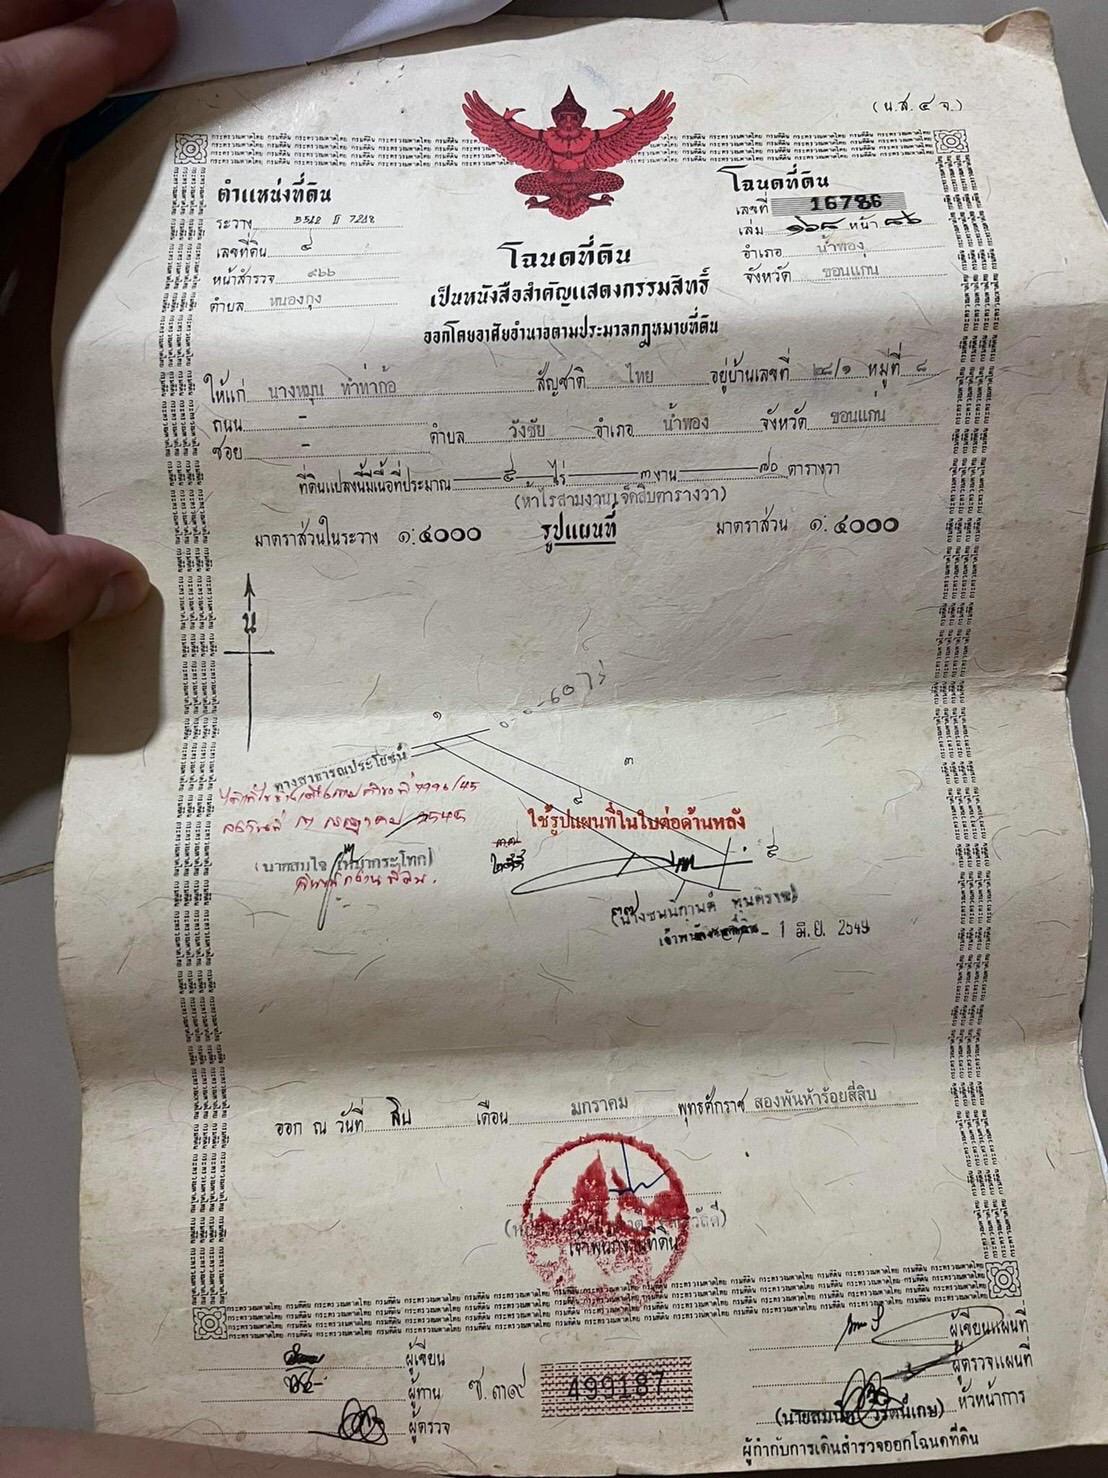 (น.ส. ๔ จ.)
ตำแหน่งที่ดิน
ระวาง 5542 II 7218
เลขที่ดิน ๔
หน้าสำรวจ ๙๖๖
ตำบล หนองกุง
โฉนดที่ดิน
เลขที่ 16786
เล่ม ๑๖๘ หน้า ๘๖
อำเภอ น้ำพอง
จังหวัด ขอนแก่น
โฉนดที่ดิน
เป็นหนังสือสำคัญแสดงกรรมสิทธิ์
ออกโดยอาศัยอำนาจตามประมวลกฎหมายที่ดิน
ให้แก่ นางหมุน ทำท่าก้อ สัญชาติ ไทย อยู่บ้านเลขที่ ๒๘/๑ หมู่ที่ ๘
ถนน -
ซอย - ตำบล วังชัย อำเภอ น้ำพอง จังหวัด ขอนแก่น
ที่ดินแปลงนี้มีเนื้อที่ประมาณ ๕ ไร่ ๓ งาน ๗๐ ตารางวา
(ห้าไร่สามงานเจ็ดสิบตารางวา)
มาตราส่วนในระวาง ๑:๔๐๐๐ รูปแผนที่ มาตราส่วน ๑:๔๐๐๐
น
๑
ทางสาธารณประโยชน์
๓
ใช้รูปแผนที่ในใบต่อด้านหลัง
เจ้าพนักงานที่ดิน - 1 มิ.ย. 2549
ออก ณ วันที่ สิบ เดือน มกราคม พุทธศักราช สองพันห้าร้อยสี่สิบ
เจ้าพนักงานที่ดิน
ผู้เขียน
ผู้ทาน
ผู้ตรวจ
ซ.๓๙ 499187
ผู้เขียนแผนที่
ผู้ตรวจแผนที่
หัวหน้าการ
ผู้กำกับการเดินสำรวจออกโฉนดที่ดิน